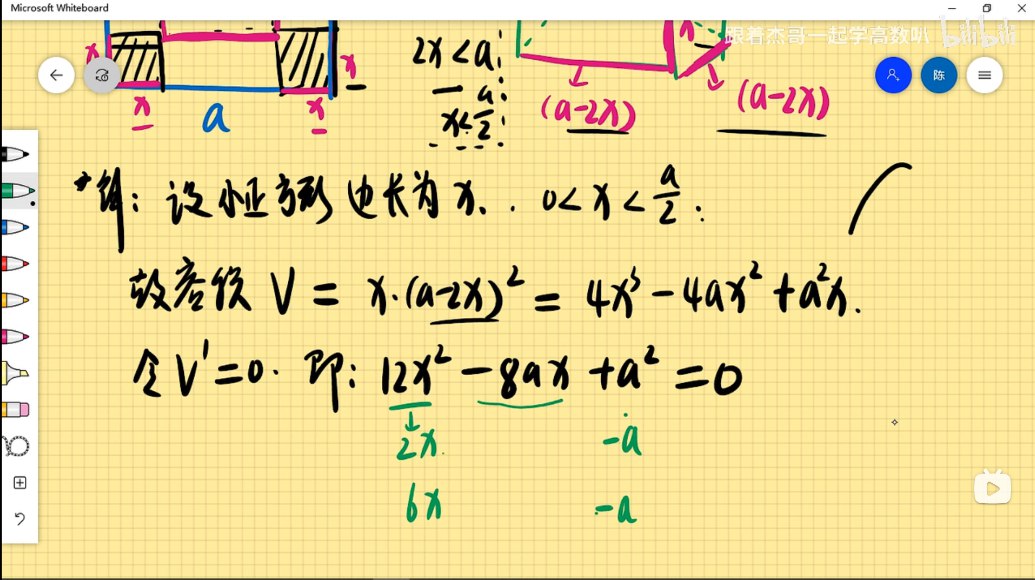 Microsoft Whiteboard
跟着杰哥一起学高数叭 bilibili
x x x x
a
2x<a:
x<a/2:
(a-2x) (a-2x)
陈
*解: 设小正方形边长为 x. . 0<x<a/2.
故容积 V = x·(a-2x)² = 4x³ - 4ax² + a²x.
令 V'=0. 即: 12x² - 8ax + a² = 0
2x -a
6x -a